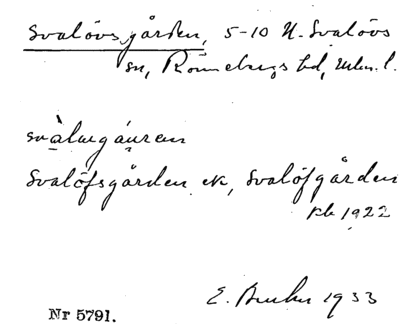 Svalövsgården, 5-10 N. Svalövs
sn, Rönnebergs hd, Mlm. l.
svalingáuren
Svalöfsgården ek, Svalöfgården
kb 1922
E. 1933
Nr 5791.